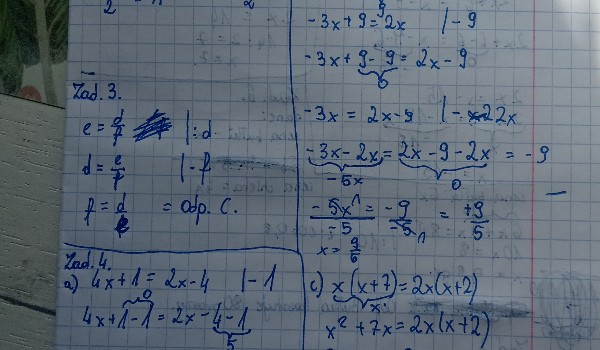 Zad. 3.
e = d/f | : d
d = e/f | - f
f = d/e = odp. C.
Zad. 4.
a) 4x + 1 = 2x - 4 | - 1
0
4x + 1 - 1 = 2x - 4 - 1
5
-3x + 9 = 2x | - 9
-3x + 9 - 9 = 2x - 9
0
-3x = 2x - 9 | - 2x
-3x - 2x = 2x - 9 - 2x = -9
-5x 0
-5x/-5 = -9/-5 = +9/5
c) x(x+7) = 2x(x+2)
x
x² + 7x = 2x(x+2)